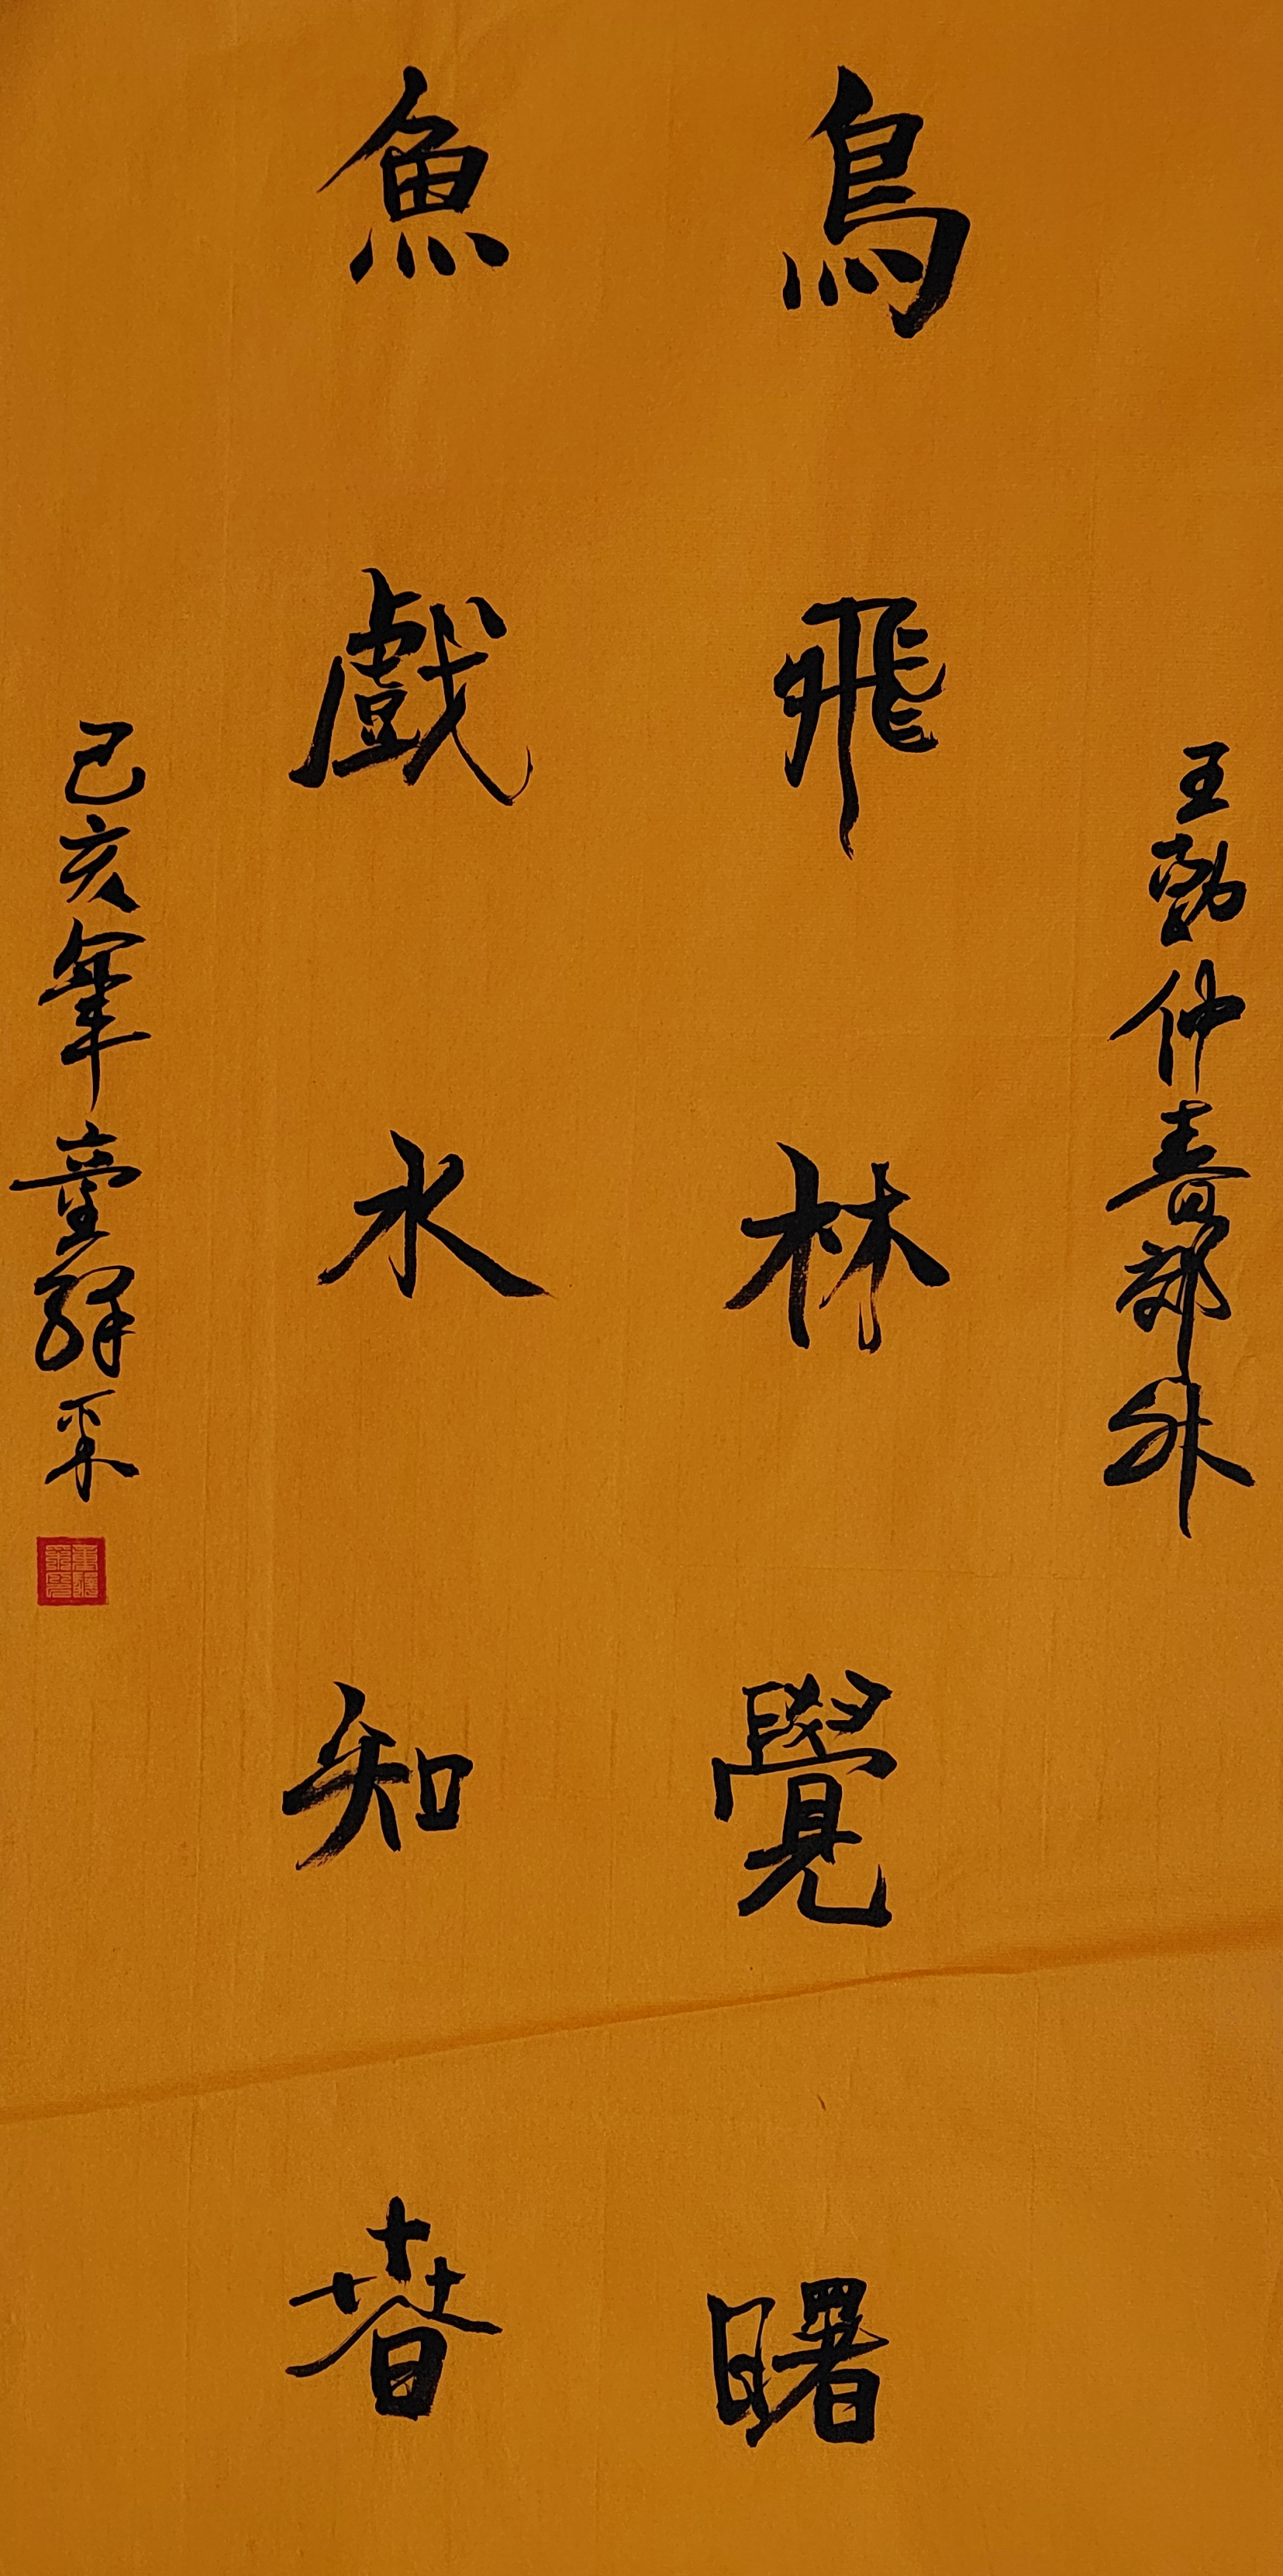 王勃仲春郊外
鳥飛林覺曙
魚戲水知春
己亥年童驛采